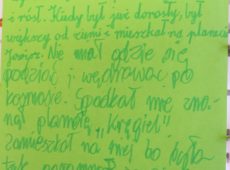 i rósł. Kiedy był już dorosły, był
większy od ziemi i mieszkał na planecie
Jowisz. Nie miał gdzie się
podziać i wędrował po
kosmosie. Spodkał się zna-
nął planetę „Kręgiel"
Zamieszkał na niej bo była
tak